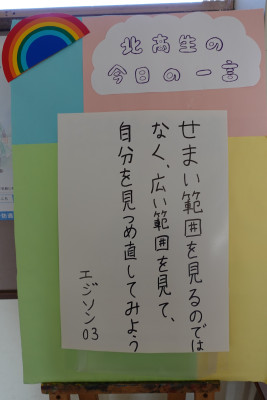 北高生の
今日の一言
せまい範囲を見るのでは
なく、広い範囲を見て、
自分を見つめ直してみよう
エジソン03